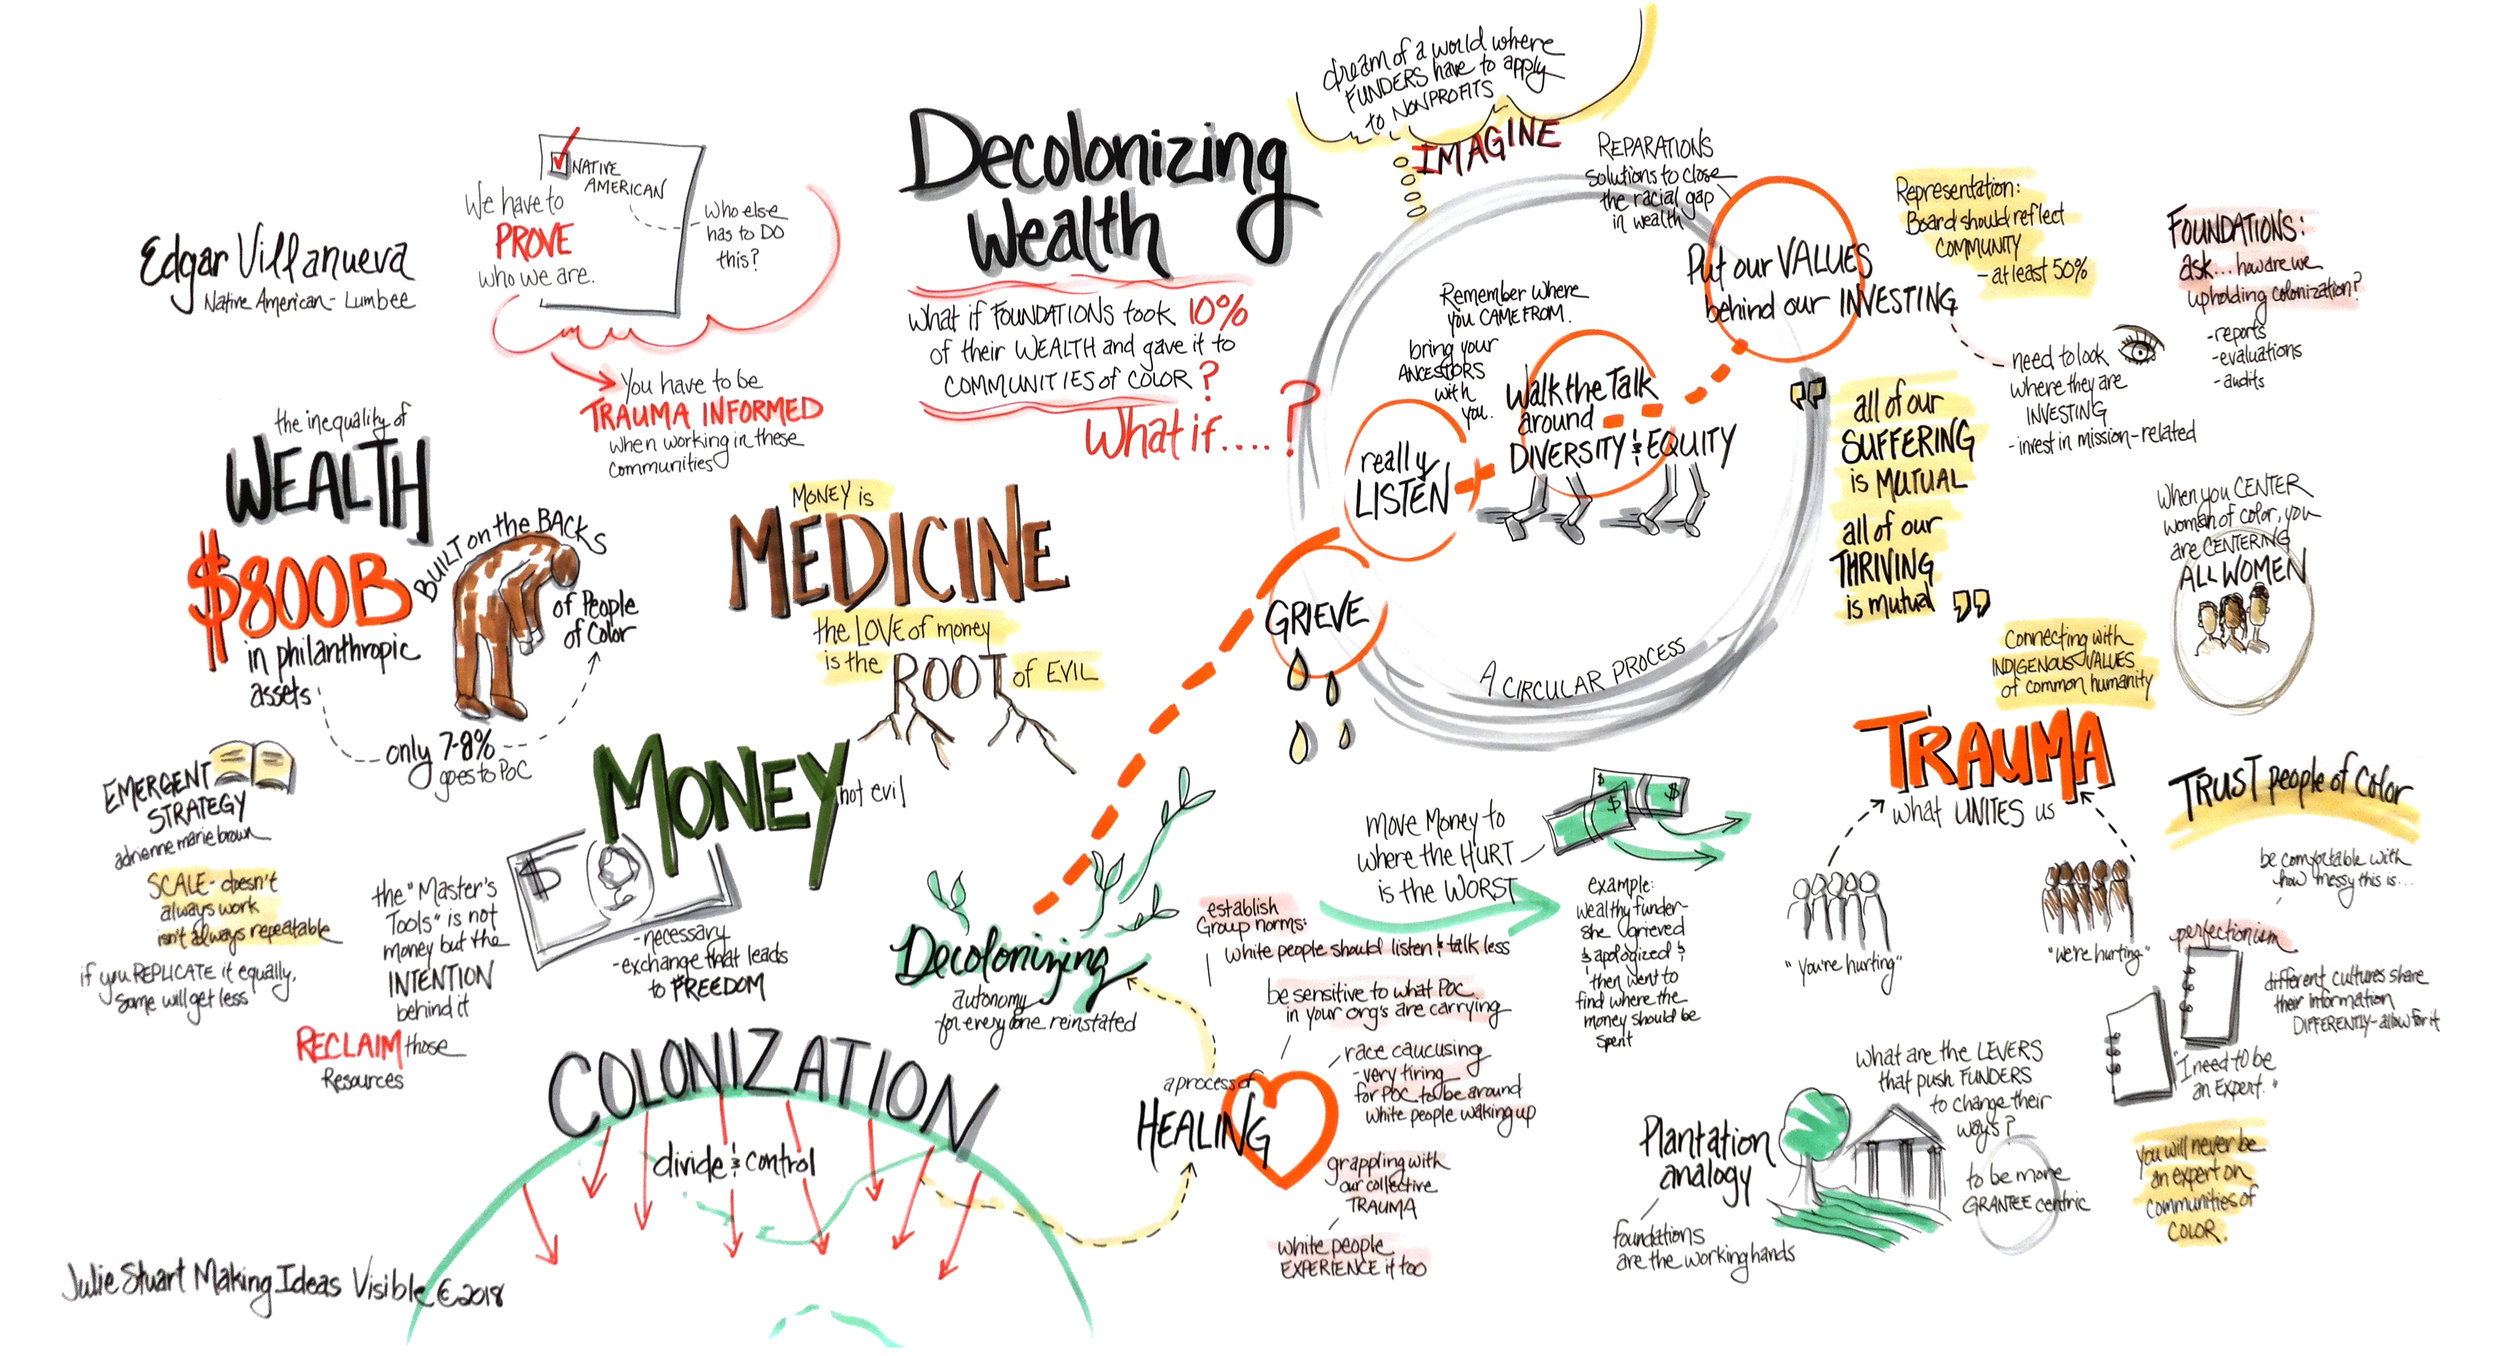 Edgar Villanueva
Native American - Lumbee
NATIVE
AMERICAN
We have to
PROVE
who we are.
who else
has to DO
this?
You have to be
TRAUMA INFORMED
when working in these
communities
Decolonizing
Wealth
What if FOUNDATIONS took 10%
of their WEALTH and gave it to
COMMUNITIES of COLOR?
What if....?
dream of a world where
FUNDERS have to apply
to NONPROFITS
IMAGINE
REPARATIONS
solutions to close
the racial gap
in wealth
Put our VALUES
behind our INVESTING
Remember where
you CAME FROM.
bring your
ANCESTORS
with
you.
Walk the Talk
around
DIVERSITY & EQUITY
really
LISTEN
+
GRIEVE
A CIRCULAR PROCESS
Representation:
Board should reflect
COMMUNITY
- at least 50%
FOUNDATIONS:
ask... how are we
upholding colonization?
- reports
- evaluations
- audits
need to look
where they are
INVESTING
- invest in mission-related
"all of our
SUFFERING
is MUTUAL
all of our
THRIVING
is mutual"
When you CENTER
woman of color, you
are CENTERING
ALL WOMEN
connecting with
INDIGENOUS VALUES
of common humanity
the inequality of
WEALTH
$800B
in philanthropic
assets
BUILT on the BACKS
of People
of Color
only 7-8%
goes to PoC
MONEY is
MEDICINE
the LOVE of money
is the ROOT of EVIL
MONEY
not evil
$
- necessary
- exchange that leads
to FREEDOM
EMERGENT
STRATEGY
adrienne marie brown
SCALE - doesn't
always work
isn't always repeatable
if you REPLICATE it equally,
some will get less
the "Master's
Tools" is not
money but the
INTENTION
behind it
RECLAIM those
Resources
Decolonizing
autonomy
for everyone reinstated
COLONIZATION
divide & control
a process of
HEALING
establish
Group norms:
white people should listen & talk less
be sensitive to what POC
in your org's are carrying
race caucusing
- very tiring
for POC to be around
white people waking up
grappling with
our collective
TRAUMA
white people
EXPERIENCE it too
move Money to
where the HURT
is the WORST
$
$
$
example:
wealthy funder -
she grieved
& apologized &
then went to
find where the
money should be
spent
TRAUMA
what UNITES us
"You're hurting"
"We're hurting"
TRUST people of Color
be comfortable with
how messy this is...
perfectionism
different cultures share
their information
DIFFERENTLY - allow for it
"I need to be
an Expert."
You will never be
an expert on
communities of
COLOR.
What are the LEVERS
that push FUNDERS
to change their
ways?
to be more
GRANTEE centric
Plantation
analogy
foundations
are the working hands
Julie Stuart Making Ideas Visible © 2018